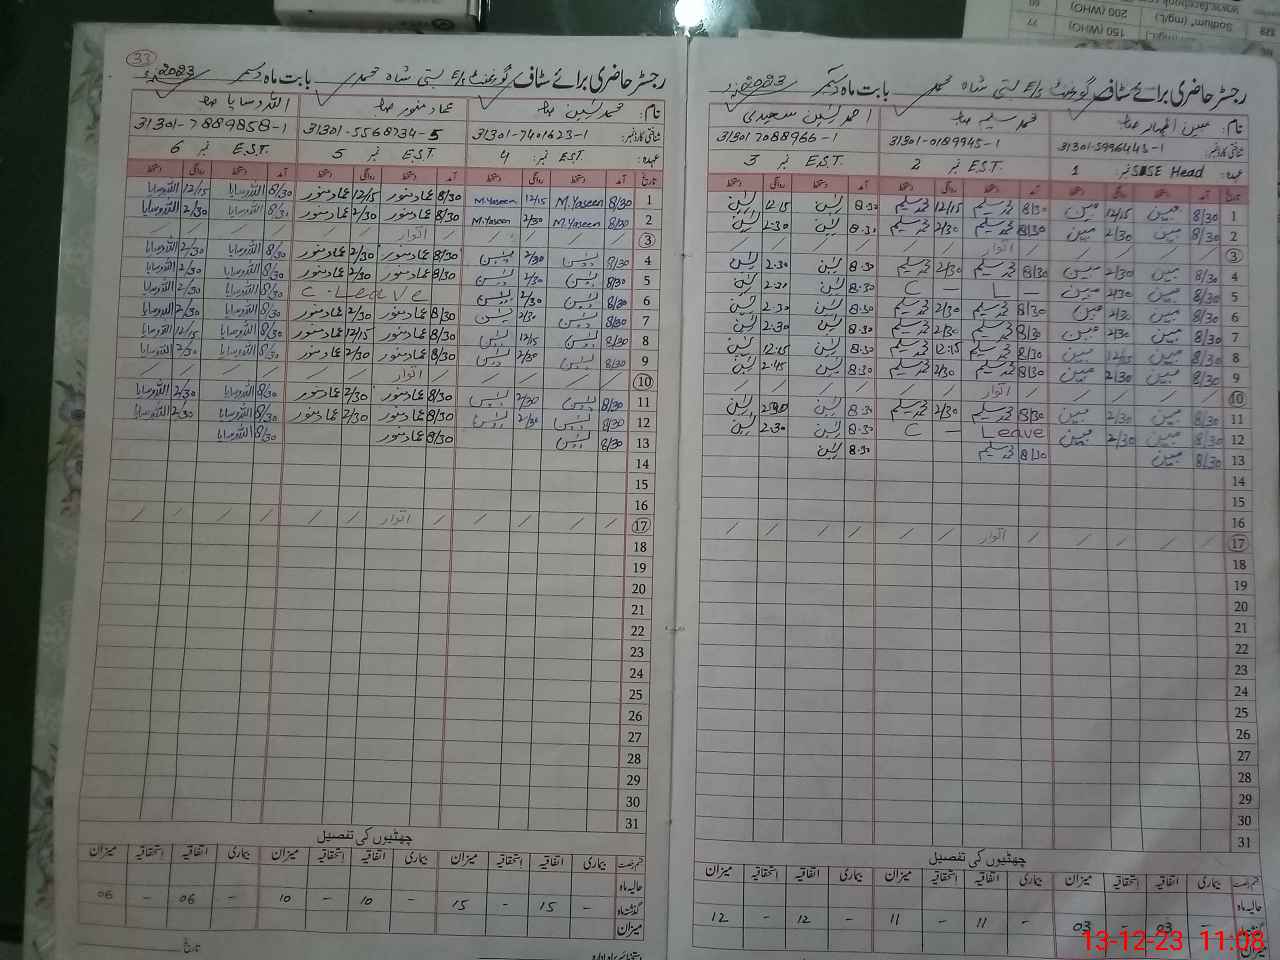 رجسٹر حاضری برائے سٹاف گورنمنٹ E/S بستی شاہ محمد بابت ماہ دسمبر 2023ء
نام: مبین اظہار صاحب محمد سلیم صاحب احمد یٰسین سعیدی
شناختی کارڈ نمبر: 31301-5996443-1 31301-0189945-1 31301 7088966-1
عہدہ: SESE Head نمبر 1 E.S.T. نمبر 2 E.S.T. نمبر 3
تاریخ آمد دستخط روانگی دستخط آمد دستخط روانگی دستخط آمد دستخط روانگی دستخط
1 8/30 مبین 12/15 مبین 8/30 محمد سلیم 12/15 محمد سلیم 8.30 یٰسین 12.15 یٰسین
2 8/30 مبین 2/30 مبین 8/30 محمد سلیم 2/30 محمد سلیم 8.30 یٰسین 2.30 یٰسین
3 / / / / / اتوار / / / / / /
4 8/30 مبین 2/30 مبین 8/30 محمد سلیم 2/30 محمد سلیم 8.30 یٰسین 2.30 یٰسین
5 8/30 مبین 2/30 مبین C - L - 8.30 یٰسین 2.30 یٰسین
6 8/30 مبین 2/30 مبین 8/30 محمد سلیم 2/30 محمد سلیم 8.30 یٰسین 2.30 یٰسین
7 8/30 مبین 2/30 مبین 8/30 محمد سلیم 2/30 محمد سلیم 8.30 یٰسین 2.30 یٰسین
8 8/30 مبین 12/15 مبین 8/30 محمد سلیم 12.15 محمد سلیم 8.30 یٰسین 12.15 یٰسین
9 8/30 مبین 2/30 مبین 8/30 محمد سلیم 2/30 محمد سلیم 8.30 یٰسین 2.15 یٰسین
10 / / / / / اتوار / / / / / /
11 8/30 مبین 2/30 مبین 8/30 محمد سلیم 2/30 محمد سلیم 8.30 یٰسین یٰسین
12 8/30 مبین 2/30 مبین C - Leave 8.30 یٰسین 2.30 یٰسین
13 8/30 مبین 8/30 محمد سلیم 8.30 یٰسین
14
15
16
17 / / / / / اتوار / / / / / /
18
19
20
21
22
23
24
25
26
27
28
29
30
31
چھٹیوں کی تفصیل
قسم رخصت بیماری اتفاقیہ استحقاقیہ میزان بیماری اتفاقیہ استحقاقیہ میزان بیماری اتفاقیہ استحقاقیہ میزان
حالیہ ماہ
03 - 03 - 11 - 11 - 12 - 12
میزان
33
رجسٹر حاضری برائے سٹاف گورنمنٹ E/S بستی شاہ محمد بابت ماہ دسمبر 2023ء
نام: محمد یٰسین صاحب عماد منور صاحب اللہ وسایا صاحب
شناختی کارڈ نمبر: 31301-7401623-1 31301-5568734-5 31301-7889858-1
عہدہ: EST. نمبر 4 E.S.T. نمبر 5 E.S.T. نمبر 6
تاریخ آمد دستخط روانگی دستخط آمد دستخط روانگی دستخط آمد دستخط روانگی دستخط
1 8/30 M.Yaseen 12/15 M.Yaseen 8/30 عماد منور 12/15 عماد منور 8/30 اللہ وسایا 12/15 اللہ وسایا
2 8/30 M.Yaseen 2/30 M.Yaseen 8/30 عماد منور 2/30 عماد منور 8/30 اللہ وسایا 2/30 اللہ وسایا
3 / / / / / اتوار / / / / / /
4 8/30 یٰسین 2/30 یٰسین 8/30 عماد منور 2/30 عماد منور 8/30 اللہ وسایا 2/30 اللہ وسایا
5 8/30 یٰسین 2/30 یٰسین 8/30 عماد منور 2/30 عماد منور 8/30 اللہ وسایا 2/30 اللہ وسایا
6 8/30 یٰسین 2/30 یٰسین C.Leave 8/30 اللہ وسایا 2/30 اللہ وسایا
7 8/30 یٰسین 2/30 یٰسین 8/30 عماد منور 2/30 عماد منور 8/30 اللہ وسایا 2/30 اللہ وسایا
8 8/30 یٰسین 12/15 یٰسین 8/30 عماد منور 12/15 عماد منور 8/30 اللہ وسایا 12/15 اللہ وسایا
9 8/30 یٰسین 2/30 یٰسین 8/30 عماد منور 2/30 عماد منور 8/30 اللہ وسایا 2/30 اللہ وسایا
10 / / / / / اتوار / / / / / /
11 8/30 یٰسین 2/30 یٰسین 8/30 عماد منور 2/30 عماد منور 8/30 اللہ وسایا 2/30 اللہ وسایا
12 8/30 یٰسین 2/30 یٰسین 8/30 عماد منور 2/30 عماد منور 8/30 اللہ وسایا 2/30 اللہ وسایا
13 8/30 یٰسین 8/30 عماد منور 8/30 اللہ وسایا
14
15
16
17 / / / / / اتوار / / / / / /
18
19
20
21
22
23
24
25
26
27
28
29
30
31
چھٹیوں کی تفصیل
قسم رخصت بیماری اتفاقیہ استحقاقیہ میزان بیماری اتفاقیہ استحقاقیہ میزان بیماری اتفاقیہ استحقاقیہ میزان
حالیہ ماہ
گذشتہ ماہ - 15 - 15 - 10 - 10 - 06 - 06
میزان
تاریخ
13-12-23 11:08
www.facebook.com
Sodium (mg/L) 200 (WHO) 60
150 (WHO) 77